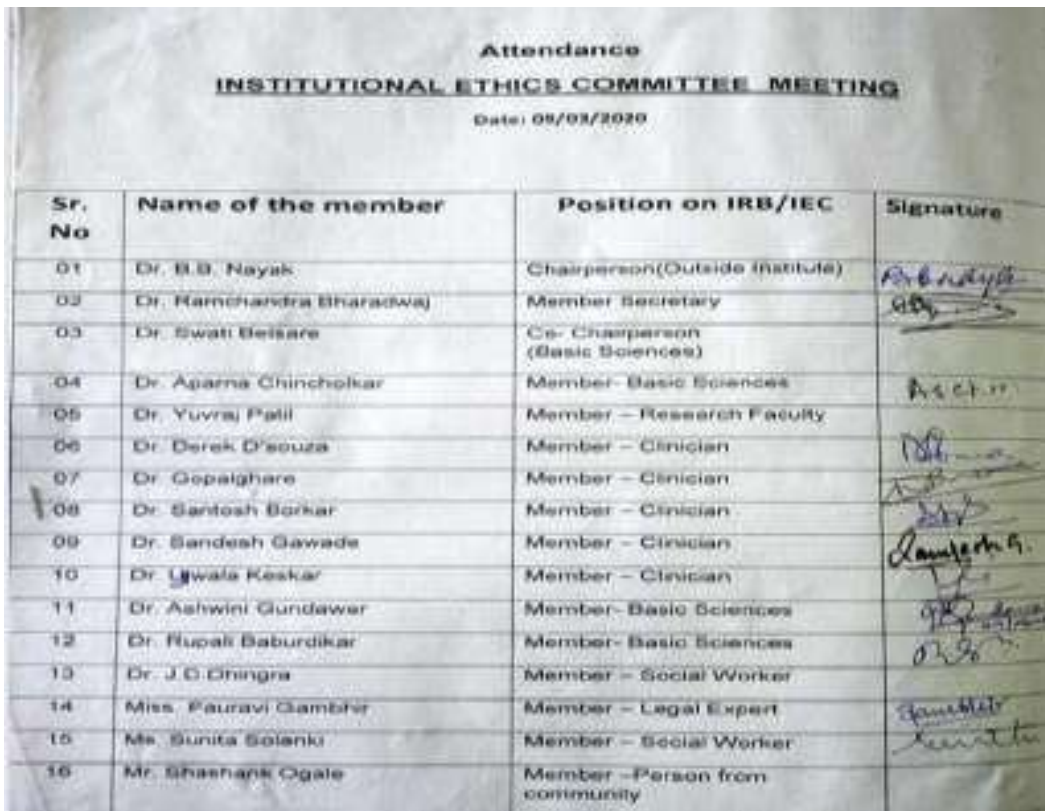 Attendance
INSTITUTIONAL ETHICS COMMITTEE MEETING
Date: 09/03/2020
Sr. No Name of the member Position on IRB/IEC Signature
01 Dr. B.B. Nayak Chairperson(Outside Institute)
02 Dr. Ramchandra Bharadwaj Member Secretary
03 Dr. Swati Belsare Co- Chairperson
(Basic Sciences)
04 Dr. Aparna Chincholkar Member- Basic Sciences
05 Dr. Yuvraj Patil Member – Research Faculty
06 Dr. Derek D'souza Member – Clinician
07 Dr. Gopalghare Member – Clinician
08 Dr. Santosh Borkar Member – Clinician
09 Dr. Sandesh Gawade Member – Clinician
10 Dr. Keskar Member – Clinician
11 Dr. Ashwini Gundawar Member- Basic Sciences
12 Dr. Rupali Baburdikar Member- Basic Sciences
13 Dr. J.C.Dhingra Member – Social Worker
14 Miss. Pauravi Gambhir Member – Legal Expert
15 Ms. Sunita Solanki Member – Social Worker
16 Mr. Shashank Ogale Member –Person from
community